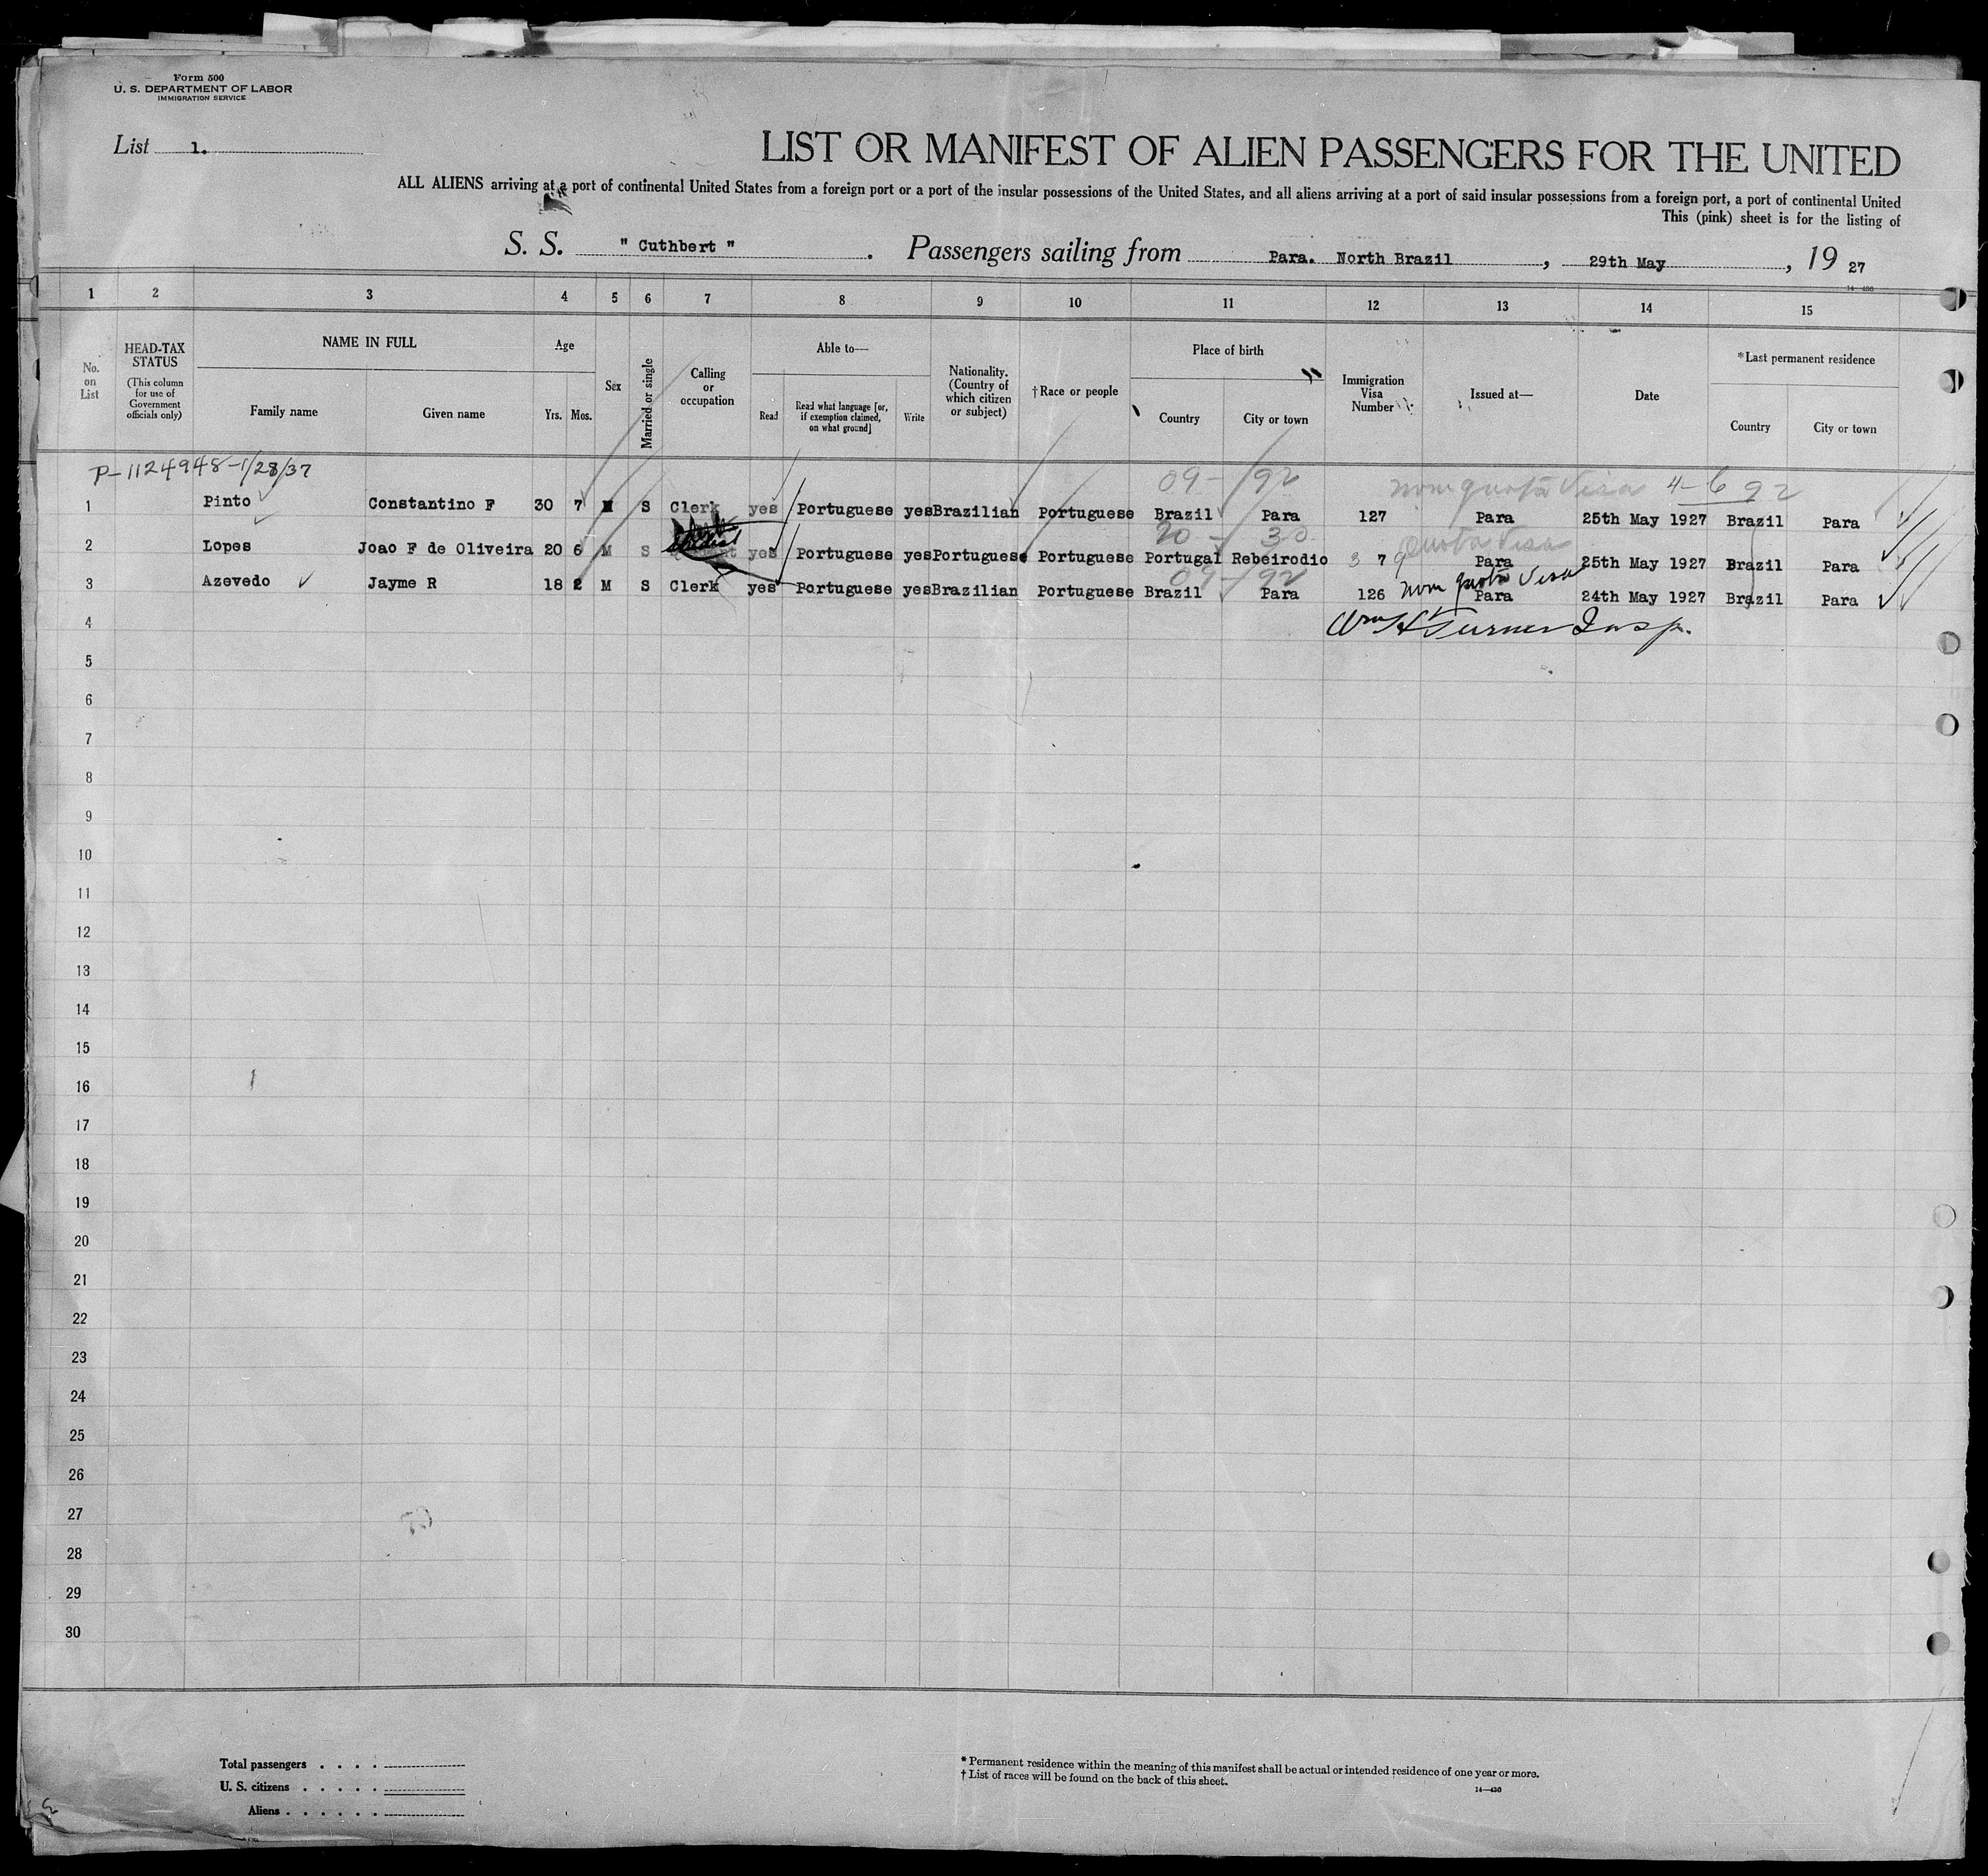 Form 500
U. S. DEPARTMENT OF LABOR
IMMIGRATION SERVICE
List 1.
LIST OR MANIFEST OF ALIEN PASSENGERS FOR THE UNITED
ALL ALIENS arriving at a port of continental United States from a foreign port or a port of the insular possessions of the United States, and all aliens arriving at a port of said insular possessions from a foreign port, a port of continental United
This (pink) sheet is for the listing of
S. S. " Cuthbert ". Passengers sailing from Para. North Brazil, 29th May, 19 27
14-430
1 2 3 4 5 6 7 8 9 10 11 12 13 14 15
No. on List
HEAD-TAX STATUS (This column for use of Government officials only)
NAME IN FULL
Family name
Given name
Age
Yrs. Mos.
Sex
Married or single
Calling or occupation
Able to—
Read
Read what language [or, if exemption claimed, on what ground]
Write
Nationality. (Country of which citizen or subject)
†Race or people
Place of birth
Country
City or town
Immigration Visa Number
Issued at—
Date
*Last permanent residence
Country
City or town
P-1124948-1/28/37
09- 92 non quota Visa 4-6 92
1 Pinto Constantino F 30 7 M S Clerk yes Portuguese yes Brazilian Portuguese Brazil Para 127 Para 25th May 1927 Brazil Para
20 - 30 Quota Visa
2 Lopes Joao F de Oliveira 20 6 M S student yes Portuguese yes Portuguese Portuguese Portugal Rebeirodio 3 7 9 Para 25th May 1927 Brazil Para
09- 92 non quota Visa
3 Azevedo Jayme R 18 2 M S Clerk yes Portuguese yes Brazilian Portuguese Brazil Para 126 Para 24th May 1927 Brazil Para
4 Wm H Turner Insp.
5
6
7
8
9
10
11
12
13
14
15
16
17
18
19
20
21
22
23
24
25
26
27
28
29
30
Total passengers . . . .
U. S. citizens . . . . .
Aliens . . . . . .
* Permanent residence within the meaning of this manifest shall be actual or intended residence of one year or more.
† List of races will be found on the back of this sheet.
14-430